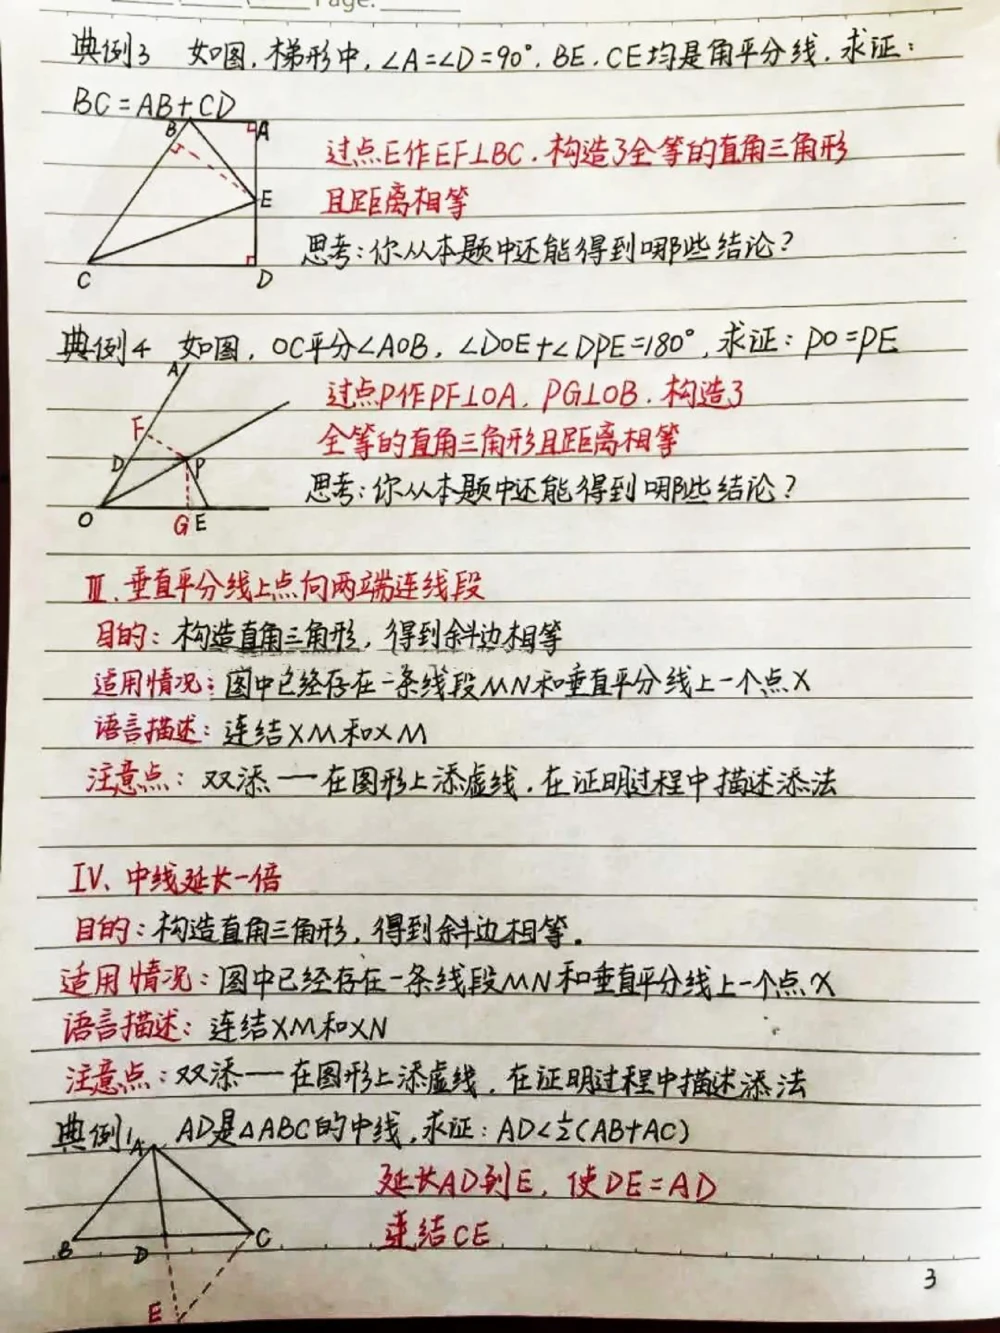 Page:
典例3 如图,梯形中,∠A=∠D=90°,BE、CE均是角平分线,求证:
BC=AB+CD
B A
过点E作EF⊥BC.构造了全等的直角三角形
E
且距离相等
思考:你从本题中还能得到哪些结论?
C D
典例4 如图,OC平分∠AOB,∠DOE+∠DPE=180°,求证:PO=PE
A
过点P作PF⊥OA,PG⊥OB.构造了
F
全等的直角三角形且距离相等
D P
思考:你从本题中还能得到哪些结论?
O G E
Ⅲ、垂直平分线上点向两端连线段
目的:构造直角三角形,得到斜边相等
适用情况:图中已经存在一条线段MN和垂直平分线上一个点X
语言描述:连结XM和XM
注意点:双添——在图形上添虚线.在证明过程中描述添法
Ⅳ、中线延长一倍
目的:构造直角三角形,得到斜边相等。
适用情况:图中已经存在一条线段MN和垂直平分线上一个点X
语言描述:连结XM和XN
注意点:双添——在图形上添虚线,在证明过程中描述添法
典例1 AD是△ABC的中线,求证:AD<½(AB+AC)
A
延长AD到E,使DE=AD
连结CE
B D C
3
E